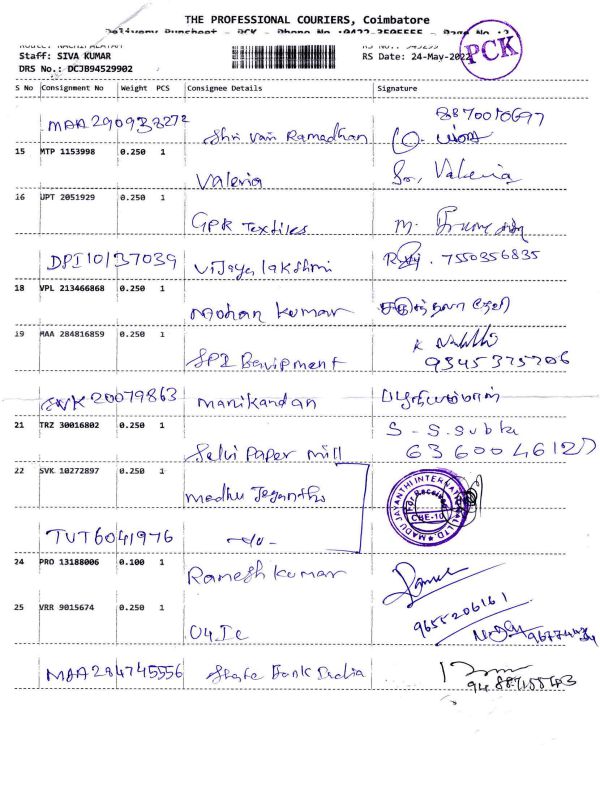 THE PROFESSIONAL COURIERS, Coimbatore
Delivery Runsheet - PCK - Phone No :0422-3505555 - Page No :2
PCK
Staff: SIVA KUMAR
RS Date: 24-May-2022
DRS No.: DCJB94529902
S No Consignment No Weight PCS Consignee Details Signature
MAA290933272 Shri Vari Ramadhan 8870010697
15 MTP 1153998 0.250 1
Valeria Valeria
16 UPT 2051929 0.250 1
GPR Textiles M.
DPI10137039 Vijaya lakshmi 7550356835
18 VPL 213466868 0.250 1
Mohan kumar
19 MAA 284816859 0.250 1
SPI 9345375706
SVK 20079863 Manikandan பழனியம்மாள்
21 TRZ 30016802 0.250 1 S - S. Subha
Selvi Paper mill
22 SVK 10272897 0.250 1
Madhu
MADU JAYANTHI INTERNATIONAL
For Received
CBE-10
TUT6041976
24 PRO 13188006 0.100 1
Ramesh kumar
25 VRR 9015674 0.250 1 9655206161
MAA284745556 State Bank India